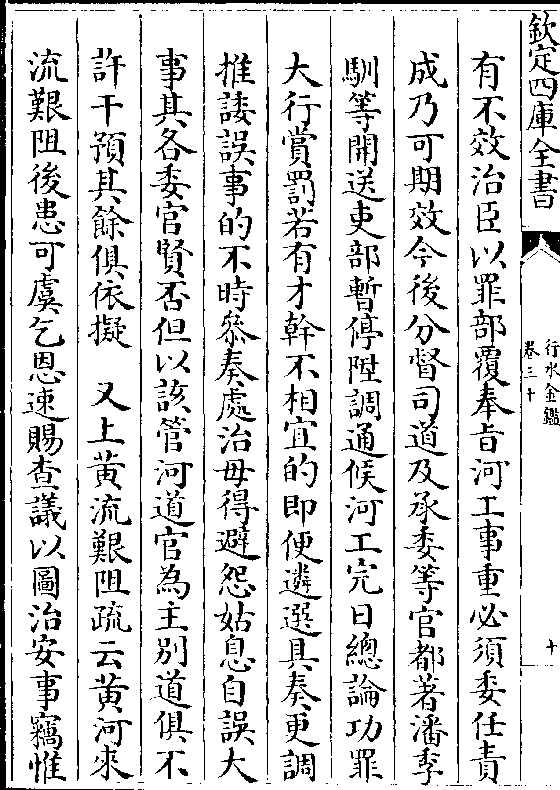 欽定四庫全書
行水金鑑
卷三十
十
有不效治臣以罪部覆奉旨河工事重必須委任責
成乃可期效今後分督司道及承委等官都著潘季
馴等開送吏部暫停陞調通候河工完日總論功罪
大行賞罰若有才幹不相宜的即便遴選具奏更調
推諉誤事的不時叅奏處治毋得避怨姑息自誤大
事其各委官賢否但以該管河道官為主別道俱不
許干預其餘俱依擬　又上黄流艱阻疏云黄河來
流艱阻後患可虞乞恩速賜查議以圖治安事竊惟